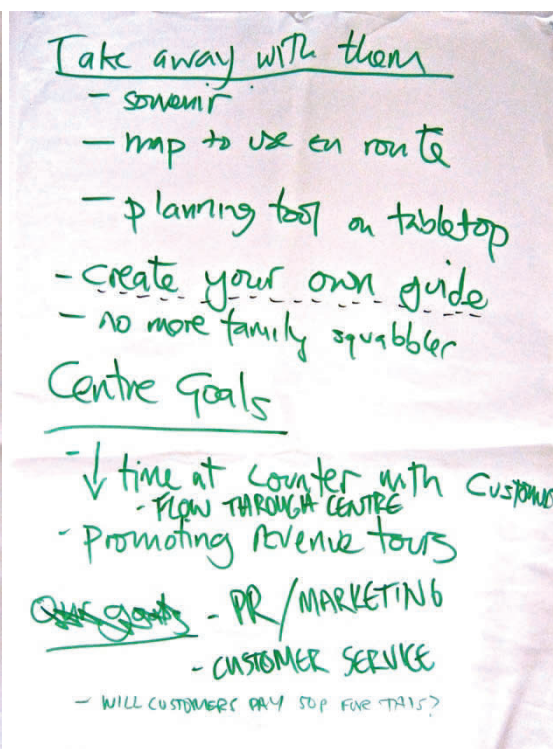 Take away with them
- souvenir
- map to use en route
- planning tool on tabletop
- create your own guide
- no more family squabbles
Centre Goals
- ↓ time at counter with Custome
- FLOW THROUGH CENTRE
- Promoting Revenue tours
- PR/MARKETING
- CUSTOMER SERVICE
- WILL CUSTOMERS PAY 50p FOR THIS?